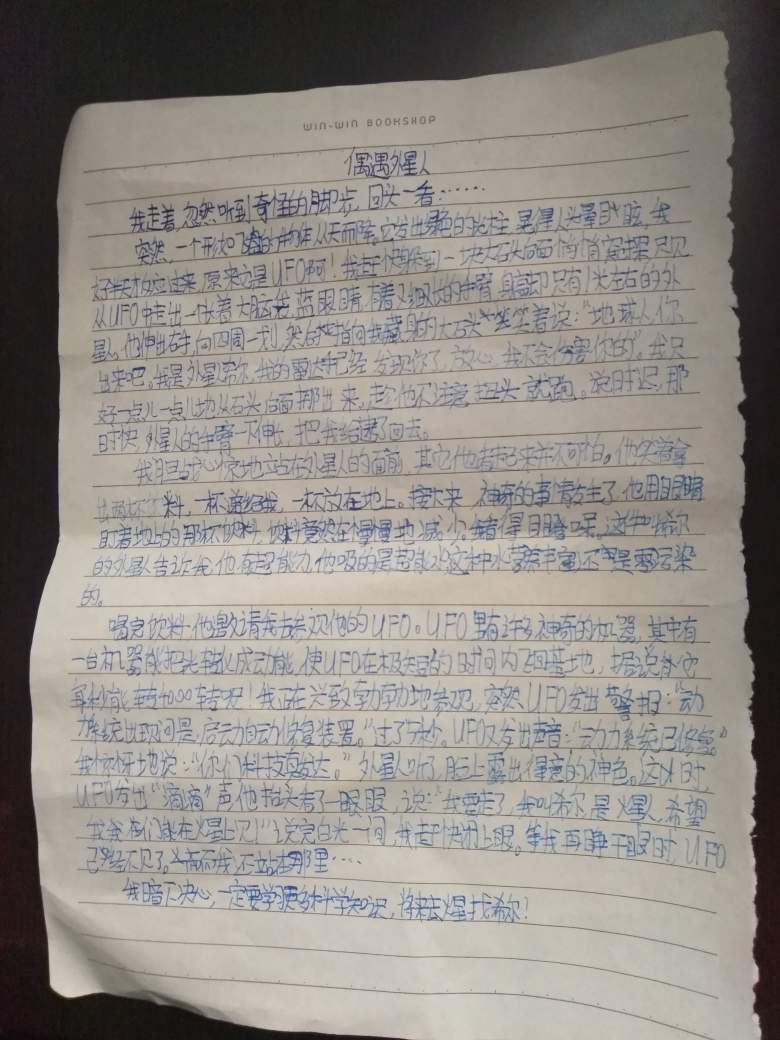 WIN-WIN BOOKSHOP
偶遇外星人
我走着,忽然听到奇怪的脚步,回头一看……
突然,一个形如飞盘的物体从天而降。它发出的光柱,晃得人头晕目眩,我
好半天才反应过来,原来这是UFO啊!我赶快躲到一块大石头后面悄悄窥探,只见
从UFO中走出一个长着大脑袋,蓝眼睛,有着又细又长的手臂,身高却只有1米左右的外
星人。他伸出右手,向四周一划,然后指向我藏身的大石头笑着说:“地球人你
出来吧。我是外星人希尔,我的雷达已经发现你了,放心,我不会伤害你的”。我只
好一点儿一点儿地从石头后面挪出来,趁他不注意扭头就跑。说时迟,那
时快,外星人的手臂一下伸长,把我给逮了回去。
我胆战心惊地站在外星人的面前,其它他看起来并不可怕。他笑着拿
出两杯饮料,一杯递给我,一杯放在地上。接下来,神奇的事情发生了,他用眼睛
盯着地上的那杯饮料,饮料竟然在慢慢地减少,我看得目瞪口呆。这个叫希尔
的外星人告诉我,他有超能力,他吸的是超能水,这种水营养丰富,还是零污染
的。
喝完饮料,他邀请我去参观他的UFO。UFO里有许多神奇的机器,其中有
一台机器能把光转化成动能,使UFO在极短的时间内飞回基地,据说它
每秒能转4000转呢!我正在兴致勃勃地参观,突然UFO发出警报:“动
力系统出现问是,启动自动修复装置。”过了5秒,UFO又发出声音:“动力系统已修复。”
我惊讶地说:“你们科技真发达。”外星人听了,脸上露出得意的神色。这时,
UFO发出“滴滴”声,他抬头看了一眼,说:“我要走了,我叫希尔,是火星人,希望
我们能在火星上见!”说完白光一闪,我赶快闭上眼。等我再睁开眼时,UFO
已经不见了。而我,还站在那里……
我暗下决心,一定要学习更多科学知识,将来去火星找希尔!